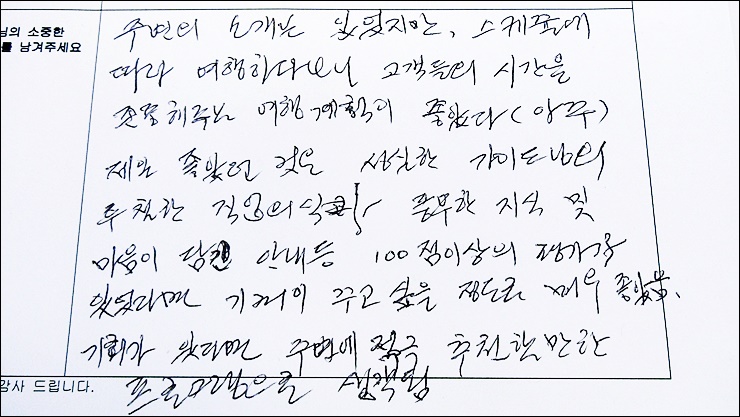 님의 소중한
를 남겨주세요
주변의 소개는 있었지만, 스케쥴에
따라 여행하다보니 고객들의 시간을
존중해주는 여행계획이 좋았다(아주)
제일 좋았던 것은 성실한 가이드님의
투철한 직업의식 풍부한 지식 및
마음이 담긴 안내등 100점이상의 평가가
있었다면 기꺼이 주고 싶을 정도로 매우 좋았음.
기회가 있다면 주변에 적극 추천할만한
프로그램으로
감사 드립니다.